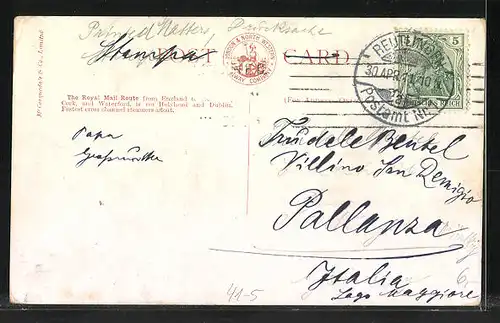 Printed Matters, Drucksache
Stampa
POST CARD
LONDON & NORTH WESTERN
RAILWAY COMPANY
McCorquodale & Co., Limited.
The Royal Mail Route from England to
Cork, and Waterford, is via Holyhead and Dublin.
Fastest cross channel steamers afloat.
(For Address Only
30 APR
Postamt
5
REICH
Papa
Grossmutter
Trudele Bentel
Villino San Remigio
Pallanza
Italia
Lago Maggiore
6
41-5